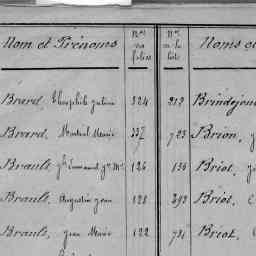 Nom et Prénoms
Nos
des
listes
Nos
de la
liste
Noms et
Brard, Théophile Julien 324 212 Brindejon
Brard, Marie 337 723 Brion, J
Brault, 126 136 Briot, J
Brault, Augustin Jean 128 393 Briot, C
Brault, Jean Marie 122 734 Briot, C